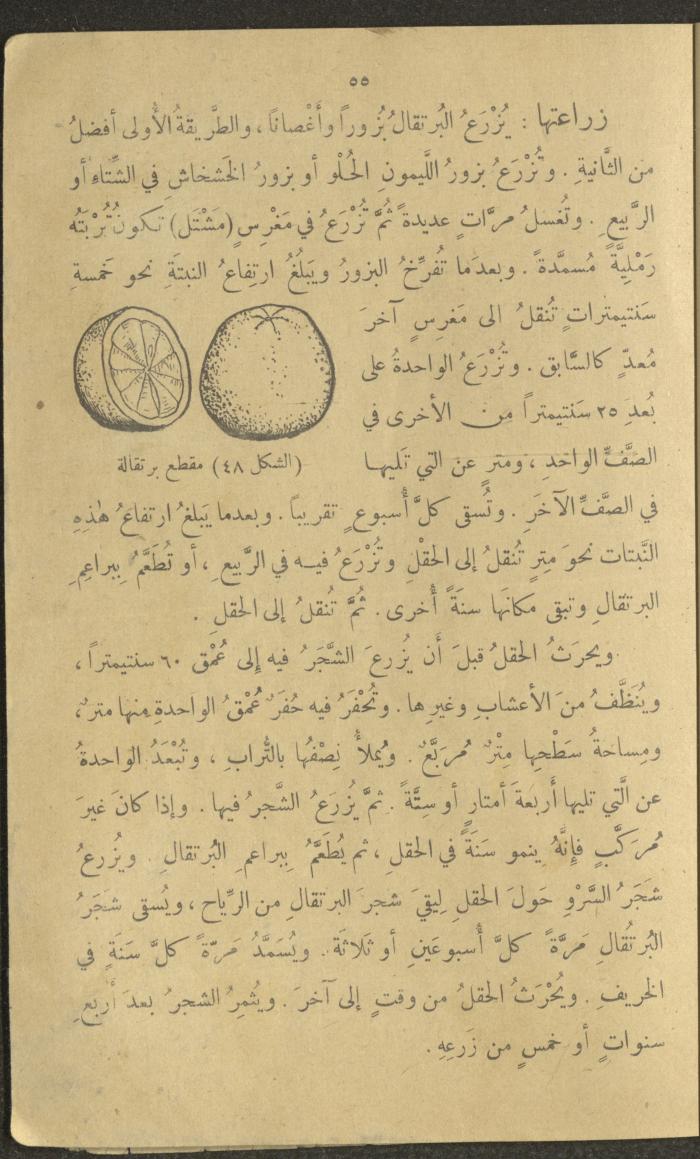 ٥٥
زراعتها : يُزْرَعُ البُرتقالُ بُزوراً وأَغْصاناً ، والطَّريقةُ الأُولى أفضلُ
من الثَّانيةِ . وتُزْرَعُ بزورُ اللَّيمونِ الحُلْو أو بزورُ الخَشخاشِ في الشِّتاءِ أو
الرَّبيعِ . وتُغسلُ مرَّاتٍ عديدةً ثُمَّ تُزْرَعُ في مَغْرِسٍ (مَشْتَل) تكونُ تُرْبَتُه
رَمْليَّةً مُسمَّدةً . وبعدَما تُفرِّخُ البزورُ ويَبلُغُ ارتِفاعُ النبتَةِ نحو خَمسةِ
سَنتيمتراتٍ تُنقلُ الى مَغرسٍ آخرَ
مُعدٍّ كالسَّابق . وتُزْرَعُ الواحدةُ على
بُعدِ ٢٥ سَنتيمتراً من الأخرى في
الصَّفِّ الواحدِ ، ومترٍ عن التي تَليها
(الشكل ٤٨) مقطع برتقالة
في الصَّفِّ الآخَرِ . وتُسقى كلَّ أُسبوعٍ تقريباً . وبعدما يَبلغُ ارتفاعُ هٰذِهِ
النَّبتات نحوَ مِترٍ تُنقلُ إلى الحَقْلِ وتُزْرَعُ فيه في الرَّبيعِ ، أو تُطَعَّمُ بِبراعِمِ
البرتقالِ وتبقى مكانَها سنَةً أُخرى . ثُمَّ تُنقلُ إلى الحقلِ .
ويحرَثُ الحقلُ قبلَ أَن يُزرعَ الشَّجَرُ فيه إِلى عُمْق ٦٠ سنتيمتراً ،
ويُنَظَّفُ منَ الأعشابِ وغيرِها . وتُحْفَرُ فيه حُفَرٌ عُمْقُ الواحدةِ منها مترٌ ،
ومِساحةُ سَطْحِها مِتْرٌ مُربَّعٌ . ويُملأُ نِصْفُها بالتُّرابِ ، وتُبْعَدُ الواحدةُ
عن الَّتي تليها أَربعَةَ أمتارٍ أو سِتَّةً . ثمَّ يُزرَعُ الشَّجرُ فيها . وإذا كانَ غيرَ
مُركَّبٍ فإِنَّهُ ينمو سَنَةً في الحقلِ ، ثم يُطَعَّمُ بِبراعمِ البُرتقالِ . ويُزرعُ
شَجَرُ السَّرْوِ حَولَ الحقلِ لِيقيَ شجرَ البرتقالِ من الرِّياح ، ويُسقى شجَرُ
البُرتُقالِ مَرَّةً كلَّ أُسبوعَينِ أو ثَلاثَة . ويُسَمَّدُ مَرّةً كلَّ سَنَةٍ في
الخريفِ . ويُحْرَثُ الحقلُ من وقتٍ إلى آخرَ . ويُثمِرُ الشجرُ بعدَ أَربعِ
سنواتٍ أو خمسٍ من زَرعِهِ .